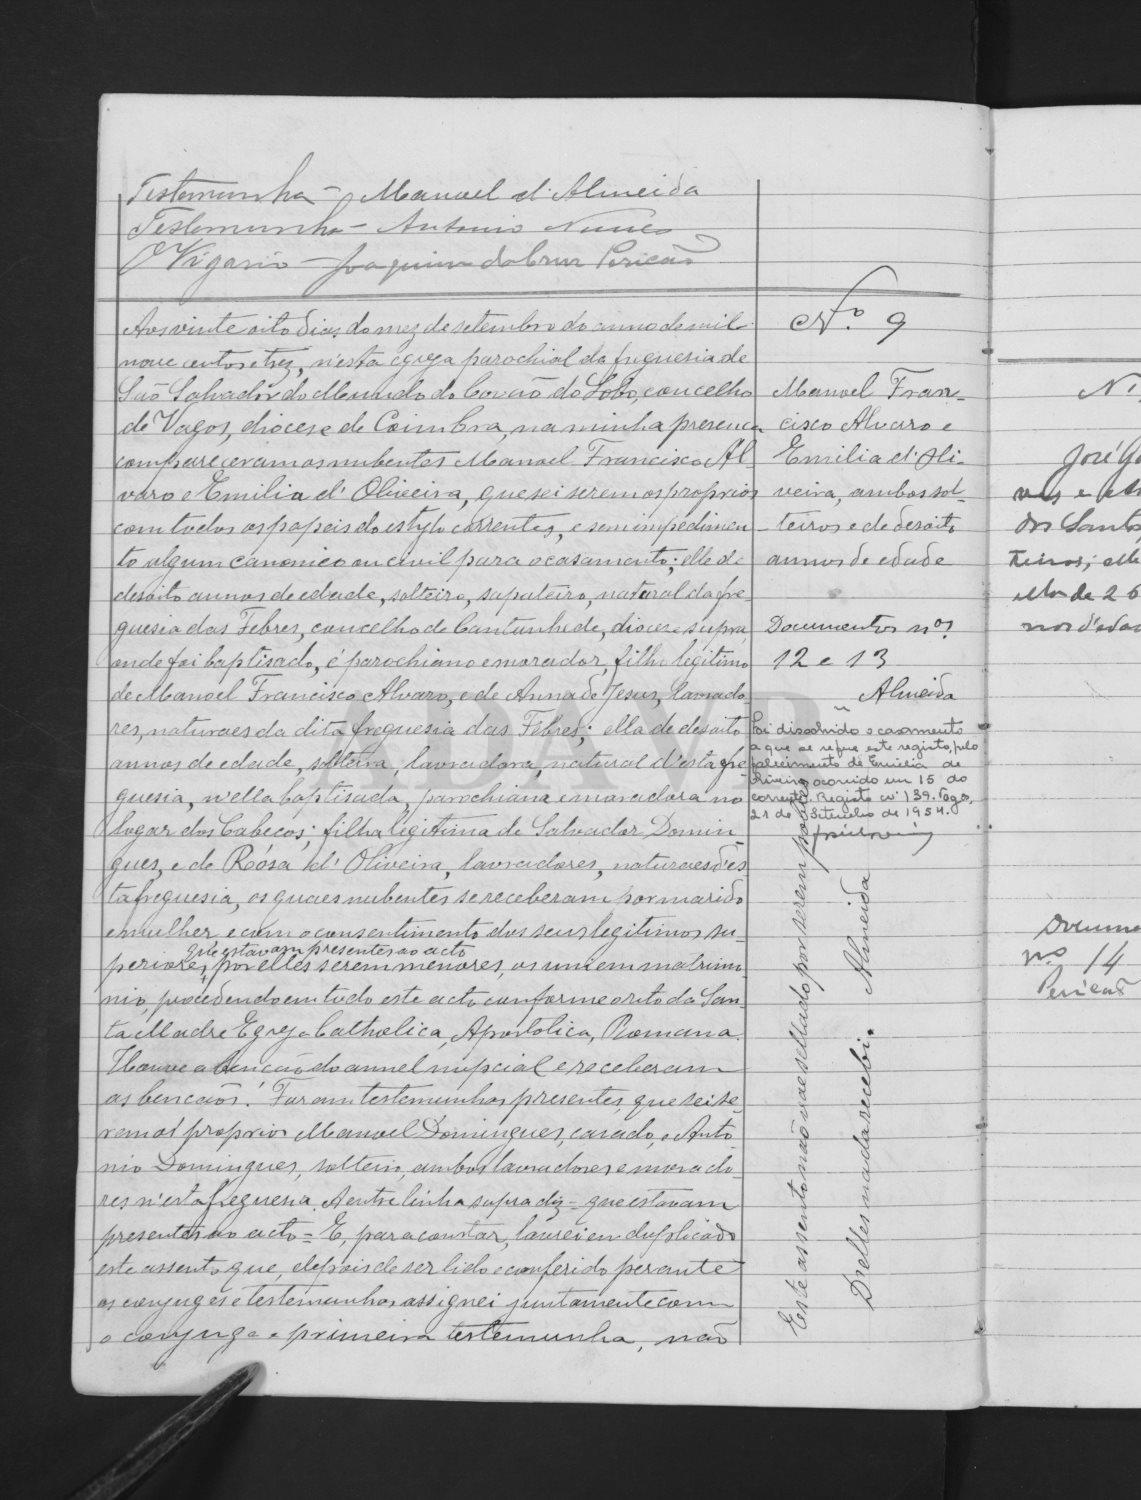 Testemunha - Manuel d'Almeida
Testemunha - Antonio Nunes
O Vigario - Joaquim da Cruz Pericão
Aos vinte oito dias do mez de setembro do anno de mil
nove centos e trez, n'esta egreja parochial da freguesia de
São Salvador do Mundo do Covão do Lobo, concelho
de Vagos, diocese de Coimbra, na minha presença
compareceram os nubentes Manoel Francisco Al-
varo e Emilia d'Oliveira, que sei serem os proprios
com todos os papeis do estylo correntes, e sem impedimen-
to algum canonico ou civil para o casamento; elle de
desoito annos de edade, solteiro, sapateiro, natural da fre-
guesia das Febres, concelho de Cantanhede, diocese supra,
onde foi baptisado, é parochiano e morador, filho legitimo
de Manoel Francisco Alvaro, e de Anna de Jesus, lavrado-
res, naturaes da dita freguesia das Febres; ella de desoito
annos de edade, solteira, lavradora, natural d'esta fre-
guesia, n'ella baptisada, parochiana e moradora no
lugar dos Cabeços; filha legitima de Salvador Domin-
gues, e de Roósa d'Oliveira, lavradores, naturaes d'es-
ta freguesia, os quaes nubentes se receberam por marido
e mulher e com o consentimento dos seus legitimos su-
que estavam presentes ao acto
periores, por elles serem menores, os uni em matrimo-
nio, procedendo em tudo este acto conforme o rito da San-
ta Madre Egreja Catholica, Apostolica, Romana.
Houve a bencão do annel nupcial e receberam
as bencãos. Foram testemunhas presentes, que sei se-
rem os proprios Manoel Domingues, casado, e Anto-
nio Domingues, solteiro, ambos lavradores e morado-
res n'esta freguesia. A entrelinha supra diz = que estavam
presentes ao acto = E, para constar, lavrei em duplicado
este assento que, depois de ser lido e conferido perante
os conjuges e testemunhas assignei juntamente com
o conjuge e primeira testemunha, não
Nº. 9
Manoel Fran-
cisco Alvaro e
Emilia d'Oli-
veira, ambos sol-
teiros e de desoito
annos de edade
Documentos nos.
12 e 13
Almeida
Foi dissolvido o casamento
a que se refere este registo, pelo
falecimento de Emilia de
Oliveira ocorrido em 15 do
corrente. Registo nº 139. Vagos,
21 de Setembro de 1954.
Este assento não vae sellado por serem pobres
D'elles nada recebi. Almeida
Nº
José
ves e
dos Santos
teiros; elle
ella de 26
nos d'edade
Docume
nº 14
Pericão
ADAVR